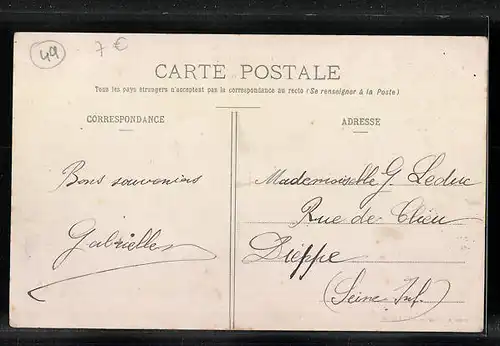 44
7 €
CARTE POSTALE
Tous les pays étrangers n'acceptent pas la correspondance au recto (Se renseigner à la Poste)
CORRESPONDANCE
Bons souvenirs
Gabrielle
ADRESSE
Mademoiselle G. Leduc
Rue de Clieu
Dieppe
(Seine Inf.)